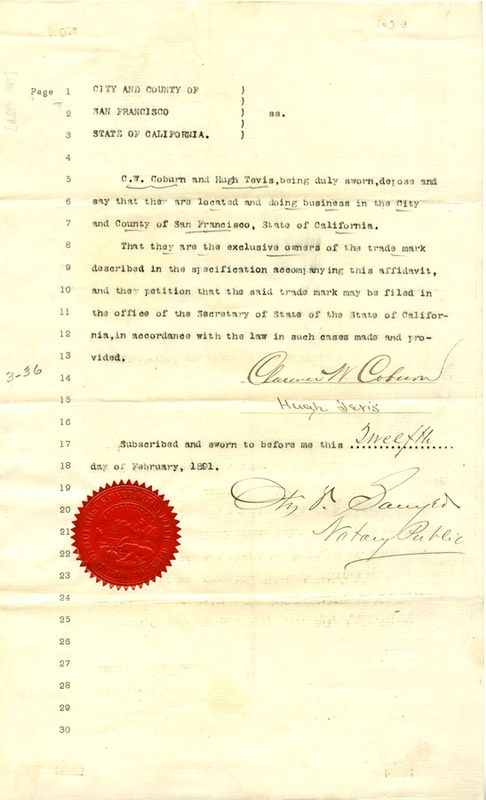 Page 1 CITY AND COUNTY OF )
2 SAN FRANCISCO ) ss.
3 STATE OF CALIFORNIA. )
4
5 C.W. Coburn and Hugh Tevis,being duly sworn,depose and
6 say that they are located and doing business in the City
7 and County of San Francisco, State of California.
8 That they are the exclusive owners of the trade mark
9 described in the specification accompanying this affidavit,
10 and they petition that the said trade mark may be filed in
11 the office of the Secretary of State of the State of Califor-
12 nia,in accordance with the law in such cases made and pro-
13 vided.
3-36
14 Clarence W. Coburn
15 Hugh Tevis
16
17 Subscribed and sworn to before me this Twelfth
18 day of February, 1891.
19
20 V. Sawyer
21 Notary Public
22
23
24
25
26
27
28
29
30